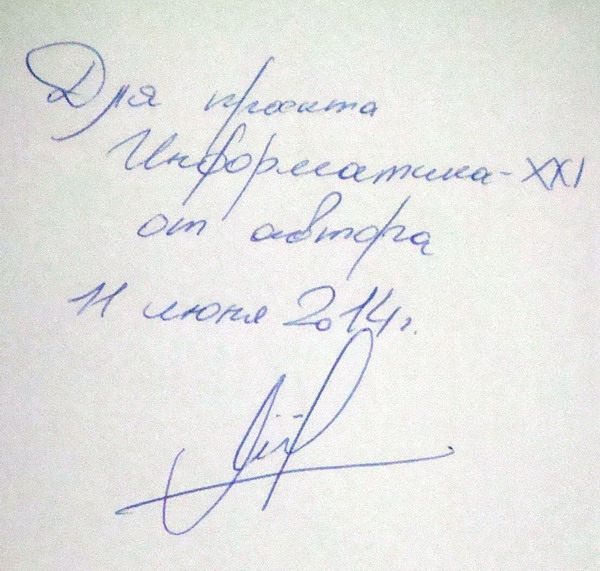 Для проекта
Информатика-XXI
от автора
11 июня 2014г.